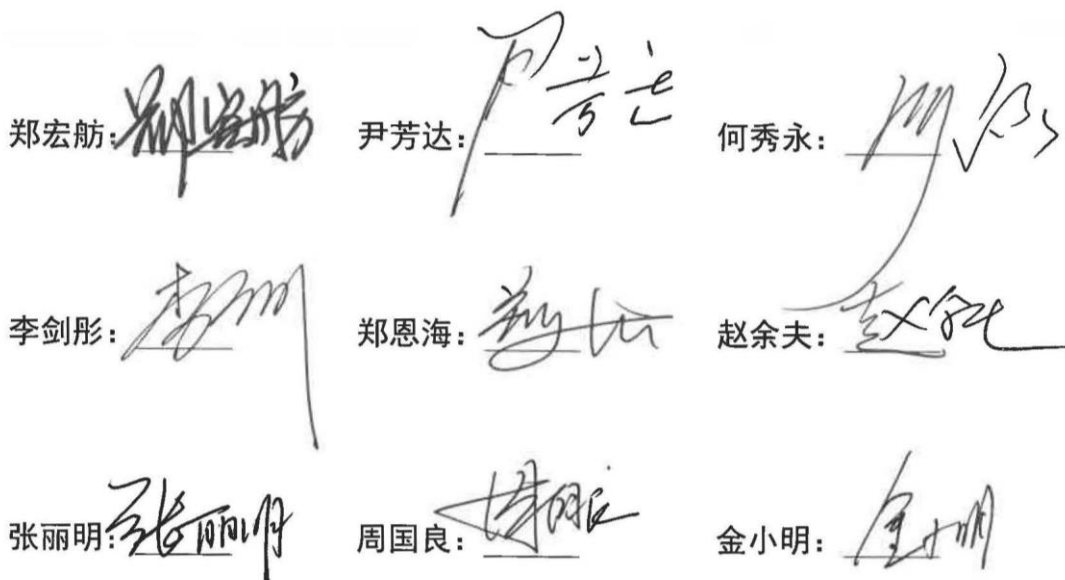 郑宏舫： 郑宏舫 尹芳达： 尹芳达 何秀永：
李剑彤： 郑恩海： 赵余夫： 赵余夫
张丽明： 张丽明 周国良： 周国良 金小明： 金小明